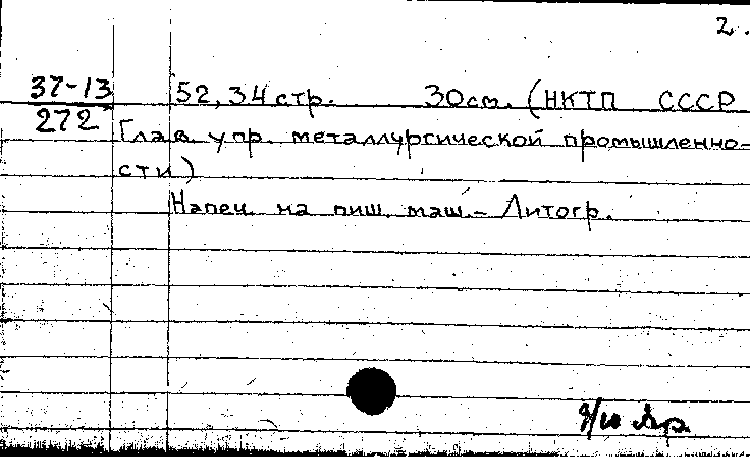 2.
37-13
272
52, 34 стр. 30 см. (НКТП СССР
Глав. упр. металлургической промышленно-
сти)
Напеч. на пиш. маш. - Литогр.